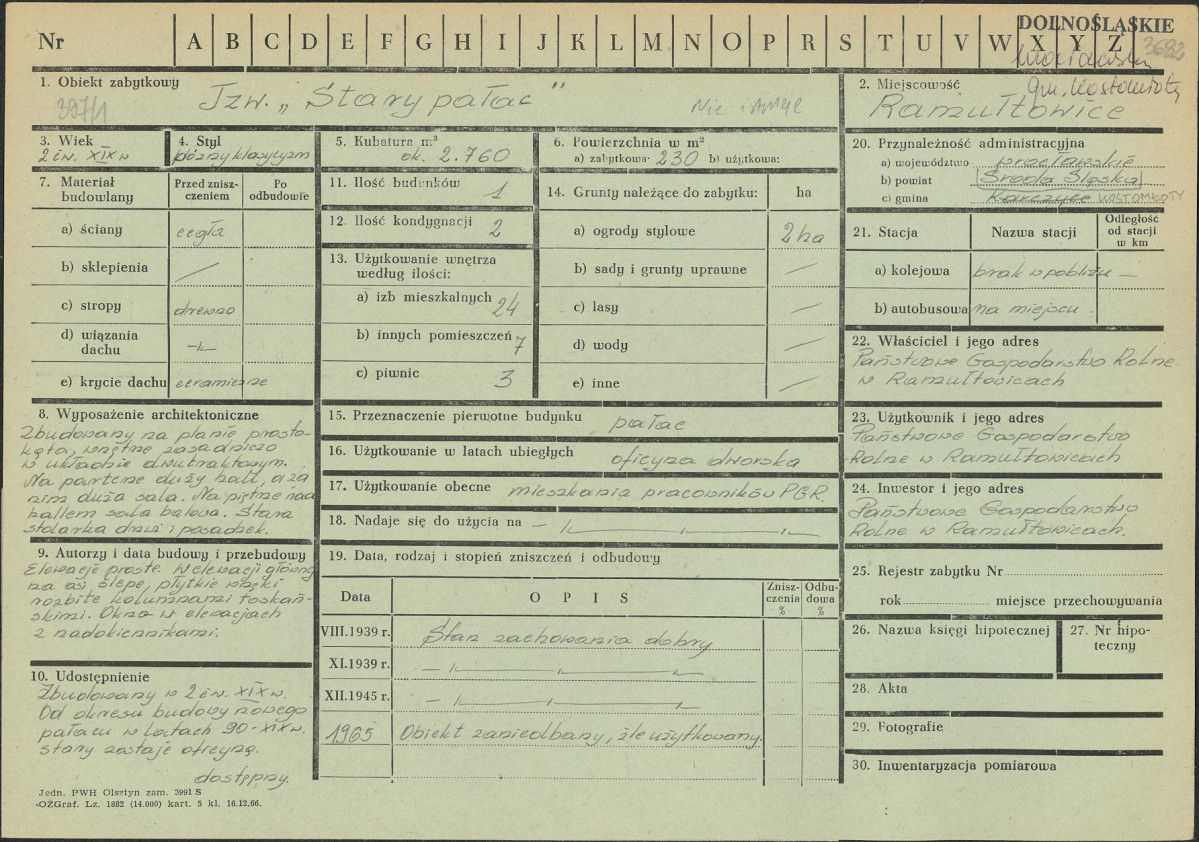 DOLNOŚLĄSKIE
Nr A B C D E F G H I J K L M N O P R S T U V W X Y Z
3682
1. Obiekt zabytkowy
Tzw. „Stary pałac"
397/1
Nie istnieje
2. Miejscowość
gm. Kostomłoty
Ramułtowice
3. Wiek
2 ćw. XIX w
4. Styl
późny klasycyzm
5. Kubatura m³
ok. 2.760
6. Powierzchnia w m²
a) zabytkowa 230 b) użytkowa:
7. Materiał budowlany
Przed zniszczeniem
Po odbudowie
a) ściany cegła
b) sklepienia —
c) stropy drewno
d) wiązania dachu -"-
e) krycie dachu ceramiczne
8. Wyposażenie architektoniczne
Zbudowany na planie prosto-
kąta, wnętrze zasadniczo
w układzie dwutraktowym.
Na parterze duży hall, a za
nim duża sala. Na piętrze nad
hallem sala balowa. Stara
stolarka drzwi i posadzek.
9. Autorzy i data budowy i przebudowy
Elewacje proste. W elewacji główn.
na osi ślepe, płytkie wnęki
rozbite kolumnami toskań-
skimi. Okna w elewacjach
z nadokiennikami.
10. Udostępnienie
Zbudowany w 2 ćw. XIX w.
Od okresu budowy nowego
pałacu w latach 90-XIX w.
stary zostaje oficyną.
dostępny.
11. Ilość budynków 1
12. Ilość kondygnacji 2
13. Użytkowanie wnętrza
według ilości:
a) izb mieszkalnych 24
b) innych pomieszczeń 7
c) piwnic 3
14. Grunty należące do zabytku: ha
a) ogrody stylowe 2 ha
b) sady i grunty uprawne —
c) lasy —
d) wody —
e) inne —
15. Przeznaczenie pierwotne budynku pałac
16. Użytkowanie w latach ubiegłych oficyna dworska
17. Użytkowanie obecne mieszkania pracowników PGR.
18. Nadaje się do użycia na -"-
19. Data, rodzaj i stopień zniszczeń i odbudowy
Data
O P I S
Zniszczenia %
Odbudowa %
VIII.1939 r. Stan zachowania dobry
XI.1939 r. -"-
XII.1945 r. -"-
1965 Obiekt zaniedbany, źle użytkowany.
20. Przynależność administracyjna
a) województwo wrocławskie
b) powiat Środa Śląska
c) gmina Karczyce KOSTOMŁOTY
21. Stacja
Nazwa stacji
Odległość od stacji w km
a) kolejowa brak w pobliżu —
b) autobusowa na miejscu
22. Właściciel i jego adres
Państwowe Gospodarstwo Rolne
w Ramułtowicach
23. Użytkownik i jego adres
Państwowe Gospodarstwo
Rolne w Ramułtowicach
24. Inwestor i jego adres
Państwowe Gospodarstwo
Rolne w Ramułtowicach.
25. Rejestr zabytku Nr
rok miejsce przechowywania
26. Nazwa księgi hipotecznej
27. Nr hipoteczny
28. Akta
29. Fotografie
30. Inwentaryzacja pomiarowa
Jedn. PWH Olsztyn zam. 3991 S
OZGraf. Lz. 1882 (14.000) kart. 5 kl. 16.12.66.